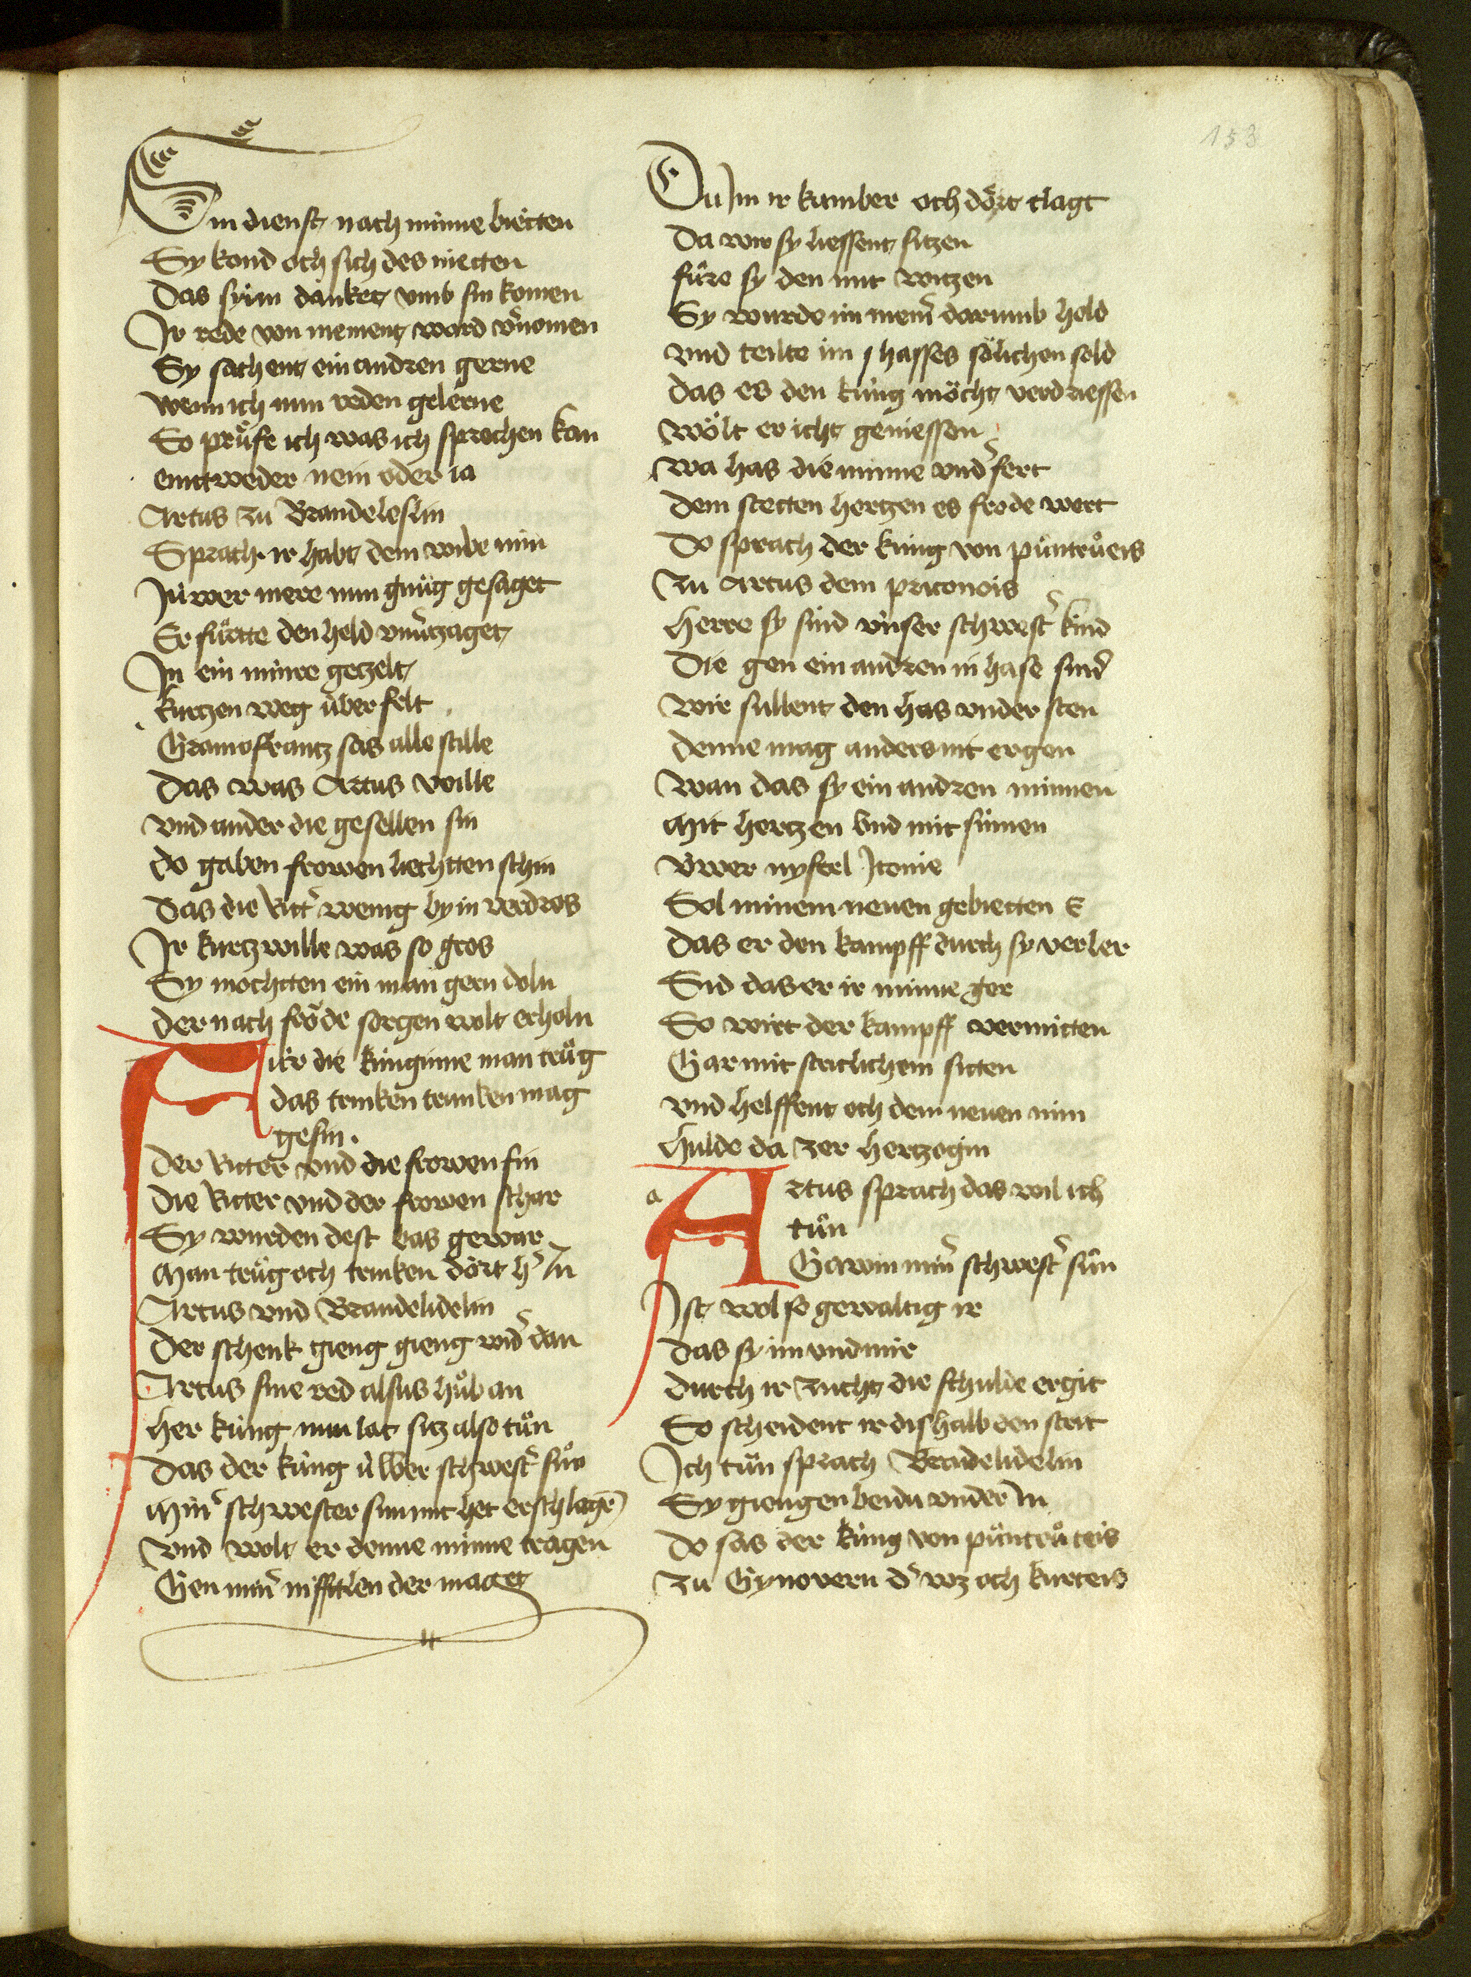 153
Sin dienst nach minne bietten
Sy kond och sich des nietten
Das sy im danket vmb sin komen
Ir rede von niement ward v̓nomen
Sy sachent ein andren gerne
wenn ich nun reden gelerne
So průfe ich was ich sprechen kan
eintweder nein oder ia
Artus zu Brandeleslin
Sprach ir habt dem wibe min
Jùwer mere nun gnůg gesaget
Er fůrtte den held vnv̓tzaget
In ein minre getzelt
kurtzen weg ùber felt
Gramoflrantz sas alle stille
Das was Artus wille
vnd ander die gesellen sin
do gaben frowen liechtten schin
Das die Ritt̓ wenig by in verdros
Ir kurtzwille was so gros
Sy mochtten ein man gern doln
der nach frôde sorgen wolt erholn
Fùr die kùnginne man trůg
das trinken trunken mag
gesin.
Der Ritter vnd die frowen sin
Die Ritter vnd der frowen schar
Sy wurden dest bas gewar
Man trůg och trinken dôrt h̓ In
Artus vnd Brandelidelin
Der schenk gieng gieng wid̓ dan
Artus sine red alsus hůb an
her kùng nun lat sitz also tůn
Das der kùng ùwer schwest̓ sůn
Min̓ schwester sun mit het erschlagē
vnd wolt er denne minne tragen
Gen min̓ nifftlen der maget
Du Im ir kumber och dôrt clagt
Da wir sy liessent sitzen
fùre sy den mit witzen
Sy wurde im niem̄ darumb hold
vnd teilte im s hasses sôlichen sold
das es den kùng môcht verdriessen
wôlt er icht geniessen
wa has die minne vnd̓fert
Dem stetten hertzen es frode wert
Do sprach der kùng von pùntrůeis
Zu Artus dem pritonois
Herre sy sind vnser schwest̓ kind
Die gen ein andren in hase sind
Wir sullent den has vnder sten
denne mag anders nit ergen
Wan das sy ein andren minnen
Mit hertzen vnd mit sinnen
Vwer nyftel Itonie
Sol minem neuen gebietten E
Das er den kampff durch sy verber
Sid das er ir minne ger
So wirt der kampff vermitten
Gar mit stritlichem sitten
vnd helffent och dem neuen min
Hulde da zer hertzogin
a
Artus sprach das wil ich
tůn
Gawin min̓ schwest̓ sůn
Ist wol so gewaltig ir
Das sy im vnd mir
Durch ir zucht die schulde ergit
So scheident ir dishalb den strit
Ich tůn sprach Brandelidelin
Sy giengen beidu vnder In
Do sas der kùng von pùntrůteis
Zu Gynovern d̓ wz och kurteis